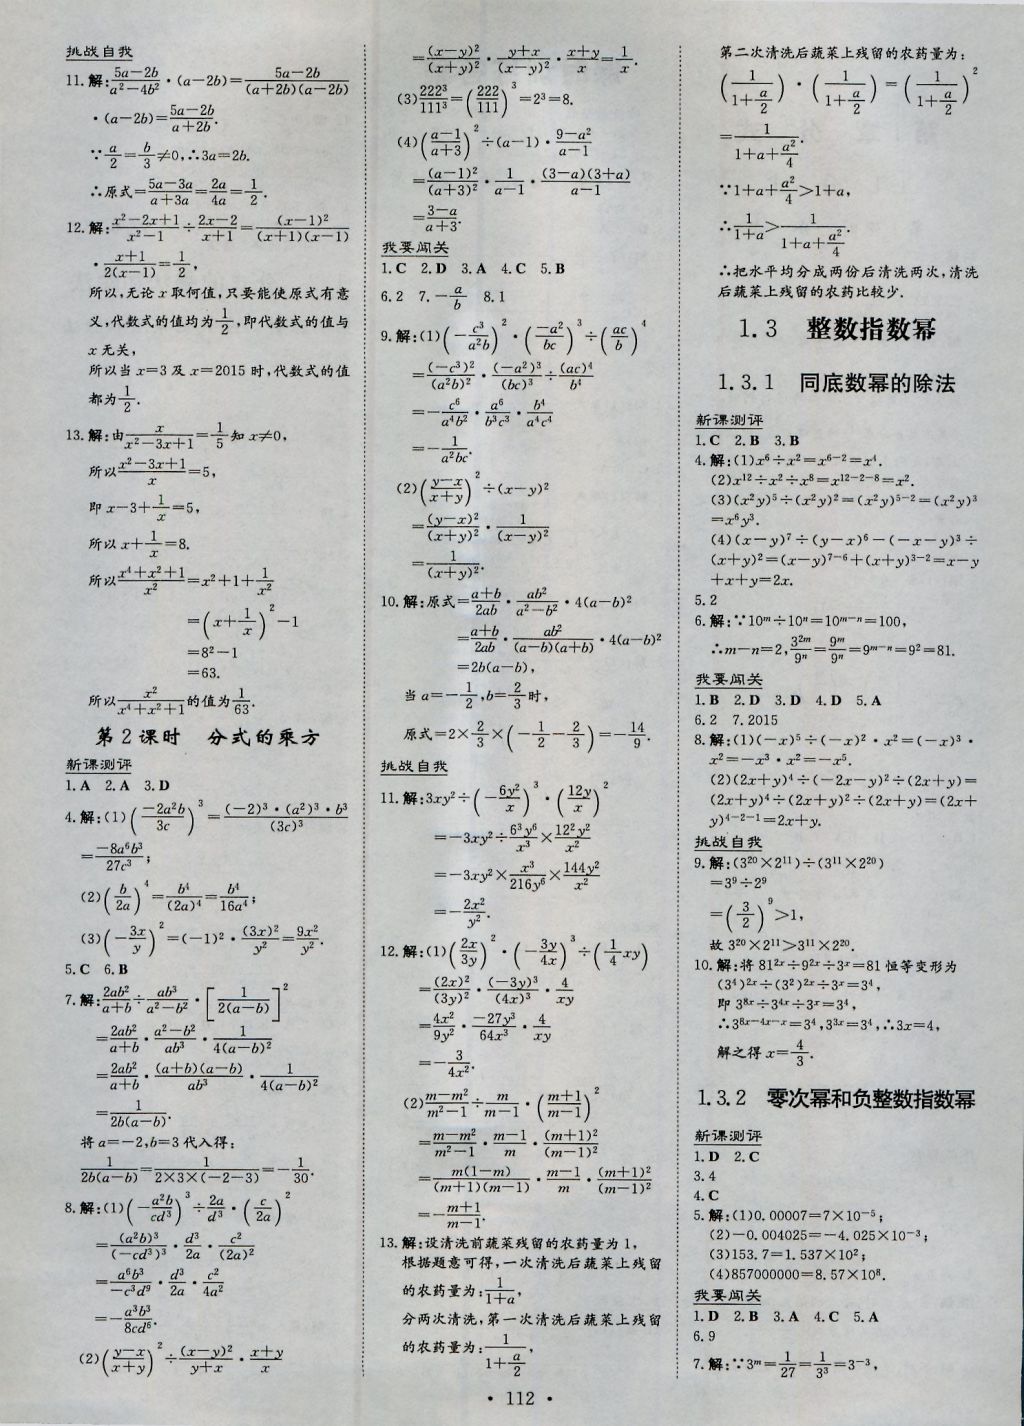 挑战自我
11.解:\frac{5a-2b}{a²-4b²}·(a-2b)=\frac{5a-2b}{(a+2b)(a-2b)}
·(a-2b)=\frac{5a-2b}{a+2b}.
∵\frac{a}{2}=\frac{b}{3}≠0,∴3a=2b.
∴原式=\frac{5a-3a}{a+3a}=\frac{2a}{4a}=\frac{1}{2}.
12.解:\frac{x²-2x+1}{x²-1}÷\frac{2x-2}{x+1}=\frac{(x-1)²}{(x+1)(x-1)}
·\frac{x+1}{2(x-1)}=\frac{1}{2},
所以,无论x取何值,只要能使原式有意
义,代数式的值均为\frac{1}{2},即代数式的值与
x无关,
所以当x=3及x=2015时,代数式的值
都为\frac{1}{2}.
13.解:由\frac{x}{x²-3x+1}=\frac{1}{5}知x≠0,
所以\frac{x²-3x+1}{x}=5,
即x-3+\frac{1}{x}=5,
所以x+\frac{1}{x}=8.
所以\frac{x⁴+x²+1}{x²}=x²+1+\frac{1}{x²}
=(x+\frac{1}{x})²-1
=8²-1
=63.
所以\frac{x²}{x⁴+x²+1}的值为\frac{1}{63}.
第2课时 分式的乘方
新课测评
1.A 2.A 3.D
4.解:(1)(\frac{-2a²b}{3c})³=\frac{(-2)³·(a²)³·b³}{(3c)³}
=\frac{-8a⁶b³}{27c³};
(2)(\frac{b}{2a})⁴=\frac{b⁴}{(2a)⁴}=\frac{b⁴}{16a⁴};
(3)(-\frac{3x}{y})²=(-1)²·\frac{(3x)²}{y²}=\frac{9x²}{y²}.
5.C 6.B
7.解:\frac{2ab²}{a+b}÷\frac{ab³}{a²-b²}·[\frac{1}{2(a-b)}]²
=\frac{2ab²}{a+b}·\frac{a²-b²}{ab³}·\frac{1}{4(a-b)²}
=\frac{2ab²}{a+b}·\frac{(a+b)(a-b)}{ab³}·\frac{1}{4(a-b)²}
=\frac{1}{2b(a-b)}.
将a=-2,b=3代入得:
\frac{1}{2b(a-b)}=\frac{1}{2×3×(-2-3)}=-\frac{1}{30}.
8.解:(1)(-\frac{a²b}{cd³})³÷\frac{2a}{d³}·(\frac{c}{2a})²
=\frac{(a²b)³}{(-cd³)³}·\frac{d³}{2a}·\frac{c²}{(2a)²}
=\frac{a⁶b³}{-c³d⁹}·\frac{d³}{2a}·\frac{c²}{4a²}
=-\frac{a³b³}{8cd⁶}.
(2)(\frac{y-x}{x+y})²÷\frac{(x-y)²}{y+x}·\frac{x+y}{x}
=\frac{(x-y)²}{(x+y)²}·\frac{y+x}{(x-y)²}·\frac{x+y}{x}=\frac{1}{x}.
(3)\frac{222³}{111³}=(\frac{222}{111})³=2³=8.
(4)(\frac{a-1}{a+3})²÷(a-1)·\frac{9-a²}{a-1}
=\frac{(a-1)²}{(a+3)²}·\frac{1}{a-1}·\frac{(3-a)(3+a)}{a-1}
=\frac{3-a}{a+3}.
我要闯关
1.C 2.D 3.A 4.C 5.B
6.2 7.-\frac{a}{b} 8.1
9.解:(1)(-\frac{c³}{a²b})²·(\frac{-a²}{bc})³÷(\frac{ac}{b})⁴
=\frac{(-c³)²}{(a²b)²}·\frac{(-a²)³}{(bc)³}÷\frac{(ac)⁴}{b⁴}
=-\frac{c⁶}{a⁴b²}·\frac{a⁶}{b³c³}·\frac{b⁴}{a⁴c⁴}
=-\frac{1}{a²bc}.
(2)(\frac{y-x}{x+y})²÷(x-y)²
=\frac{(y-x)²}{(x+y)²}·\frac{1}{(x-y)²}
=\frac{1}{(x+y)²}.
10.解:原式=\frac{a+b}{2ab}·\frac{ab²}{a²-b²}·4(a-b)²
=\frac{a+b}{2ab}·\frac{ab²}{(a-b)(a+b)}·4(a-b)²
=2b(a-b),
当a=-\frac{1}{2},b=\frac{2}{3}时,
原式=2×\frac{2}{3}×(-\frac{1}{2}-\frac{2}{3})=-\frac{14}{9}.
挑战自我
11.解:3xy²÷(-\frac{6y²}{x})³·(\frac{12y}{x})²
=-3xy²÷\frac{6³y⁶}{x³}×\frac{12²y²}{x²}
=-3xy²×\frac{x³}{216y⁶}×\frac{144y²}{x²}
=-\frac{2x²}{y²}.
12.解:(1)(\frac{2x}{3y})²·(-\frac{3y}{4x})³÷(\frac{1}{4}xy)
=\frac{(2x)²}{(3y)²}·\frac{(-3y)³}{(4x)³}·\frac{4}{xy}
=\frac{4x²}{9y²}·\frac{-27y³}{64x³}·\frac{4}{xy}
=-\frac{3}{4x²}.
(2)\frac{m-m²}{m²-1}÷\frac{m}{m-1}·(\frac{m+1}{m-1})²
=\frac{m-m²}{m²-1}·\frac{m-1}{m}·\frac{(m+1)²}{(m-1)²}
=\frac{m(1-m)}{(m+1)(m-1)}·\frac{m-1}{m}·\frac{(m+1)²}{(m-1)²}
=-\frac{m+1}{m-1}.
13.解:设清洗前蔬菜残留的农药量为1,
根据题意可得,一次清洗后蔬菜上残留
的农药量为:\frac{1}{1+a},
分两次清洗,第一次清洗后蔬菜上残留
的农药量为:\frac{1}{1+\frac{a}{2}},
第二次清洗后蔬菜上残留的农药量为:
(\frac{1}{1+\frac{a}{2}})·(\frac{1}{1+\frac{a}{2}})=(\frac{1}{1+\frac{a}{2}})²
=\frac{1}{1+a+\frac{a²}{4}}.
∵1+a+\frac{a²}{4}>1+a,
∴\frac{1}{1+a}>\frac{1}{1+a+\frac{a²}{4}}.
∴把水平均分成两份后清洗两次,清洗
后蔬菜上残留的农药比较少.
1.3 整数指数幂
1.3.1 同底数幂的除法
新课测评
1.C 2.B 3.B
4.解:(1)x⁶÷x²=x⁶⁻²=x⁴.
(2)x¹²÷x²÷x⁸=x¹²⁻²⁻⁸=x².
(3)(x²y)⁵÷(x²y)²=(x²y)⁵⁻²=(x²y)³
=x⁶y³.
(4)(x-y)⁷÷(y-x)⁶-(-x-y)³÷
(x+y)²=(x-y)⁷⁻⁶+(x+y)³⁻²=x-y
+x+y=2x.
5.2
6.解:∵10ᵐ÷10ⁿ=10ᵐ⁻ⁿ=100,
∴m-n=2,\frac{3²ᵐ}{9ⁿ}=\frac{9ᵐ}{9ⁿ}=9ᵐ⁻ⁿ=9²=81.
我要闯关
1.B 2.D 3.D 4.D 5.A
6.2 7.2015
8.解:(1)(-x)⁵÷(-x)²·x²=(-x)³·
x²=-x³·x²=-x⁵.
(2)(2x+y)⁴÷(-2x-y)²÷(2x+y)=
(2x+y)⁴÷(2x+y)²÷(2x+y)=(2x+
y)⁴⁻²⁻¹=2x+y.
挑战自我
9.解:(3²⁰×2¹¹)÷(3¹¹×2²⁰)
=3⁹÷2⁹
=(\frac{3}{2})⁹>1,
故3²⁰×2¹¹>3¹¹×2²⁰.
10.解:将81²ˣ÷9²ˣ÷3ˣ=81恒等变形为
(3⁴)²ˣ÷(3²)²ˣ÷3ˣ=3⁴,
即3⁸ˣ÷3⁴ˣ÷3ˣ=3⁴,
∴3⁸ˣ⁻⁴ˣ⁻ˣ=3⁴,3³ˣ=3⁴,∴3x=4,
解之得x=\frac{4}{3}.
1.3.2 零次幂和负整数指数幂
新课测评
1.D 2.C
3.4
4.C
5.解:(1)0.00007=7×10⁻⁵;
(2)-0.004025=-4.025×10⁻³;
(3)153.7=1.537×10²;
(4)857000000=8.57×10⁸.
我要闯关
1.D 2.B 3.A 4.C 5.A
6.9
7.解:∵3ᵐ=\frac{1}{27}=\frac{1}{3³}=3⁻³,
· 112 ·